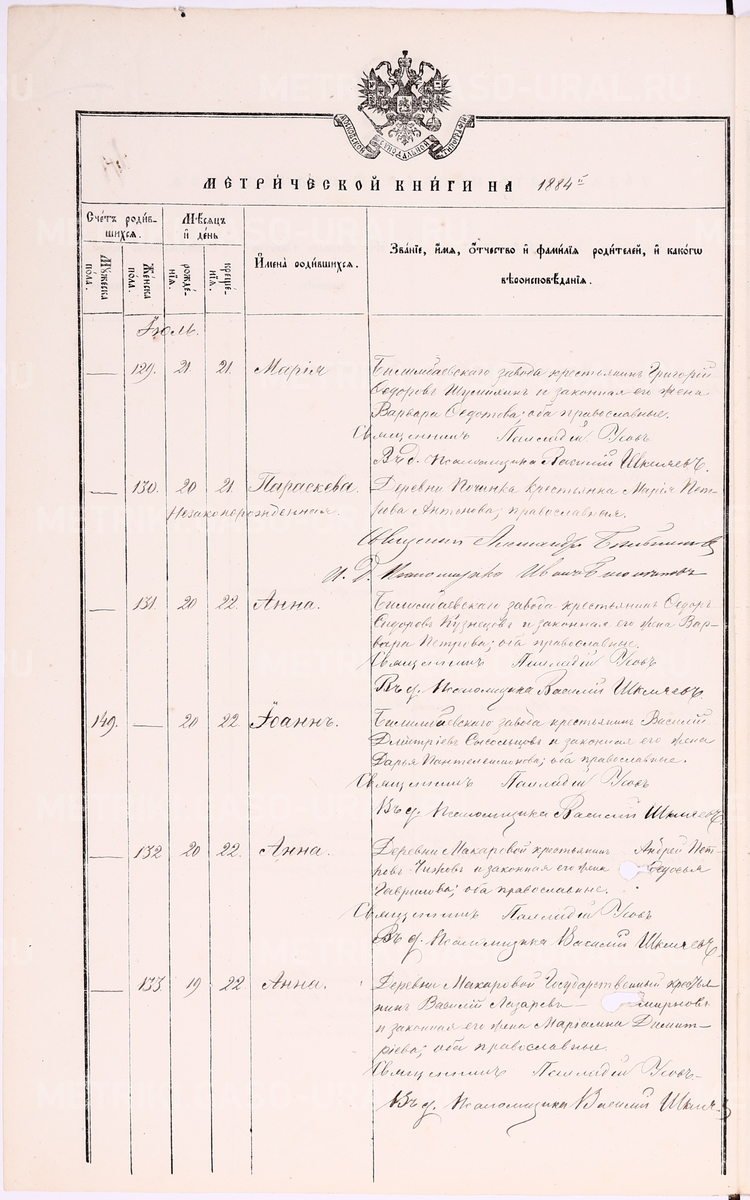 МОСКОВСКОЙ СУНОДАЛЬНОЙ ТИПОГРАФІИ
МЕТРИ́ЧЕСКОЙ КНИ́ГИ НА 1884 г.
Сче́тъ роди́в-
шихся.
Мѣсяцъ
и҆ де́нь
И҆мена̀ роди́вшихся.
Зва́нїе, и҆́мя, ѻ҆́тчество и҆ фами́лїя роди́телей, и҆ како́гѡ
вѣроисповѣ́данїя.
Мꙋ́жеска по́ла.
Же́нска по́ла.
рожде́-нїя.
креще́-нїя.
Іюль.
— 129. 21. 21. Марія Билимбаевскаго завода крестьянинъ Григорій
Ѳедоровъ Шумилинъ и законная его жена
Варвара Ѳедотова; оба православные.
Священникъ Палладій Усовъ
Въ д. Псаломщика Василій Шкляевъ.
— 130. 20 21. Параскева. Деревни Починка крестьянка Марія Пет-
Незаконорожденная. рова Антонова; православная.
Священникъ Александръ
И. Д. Псаломщика Иванъ
— 131. 20 22. Анна. Билимбаевскаго завода крестьянинъ Ѳедоръ
Сидоровъ Кузнецовъ и законная его жена Вар-
вара Петрова; оба православные.
Священникъ Палладій Усовъ
Въ д. Псаломщика Василій Шкляевъ.
149. — 20 22 Іоаннъ. Билимбаевскаго завода крестьянинъ Василій
Дмитріевъ Сысольцовъ и законная его жена
Дарья Пантелеимонова; оба православные.
Священникъ Палладій Усовъ
Въ д. Псаломщика Василій Шкляевъ
— 132 20 22. Анна. Деревни Макаровой крестьянинъ Андрей Пет-
ровъ Чижовъ и законная его жена Ѳедосья
Гаврилова; оба православные.
Священникъ Палладій Усовъ
Въ д. Псаломщика Василій Шкляевъ.
— 133 19 22 Анна. Деревни Макаровой Государственный крестья-
нинъ Василій Лазаревъ — Смирновъ
и законная его жена Маріамна Димит-
ріева; оба православные.
Священникъ Палладій Усовъ
Въ д. Псаломщика Василій Шкляе-